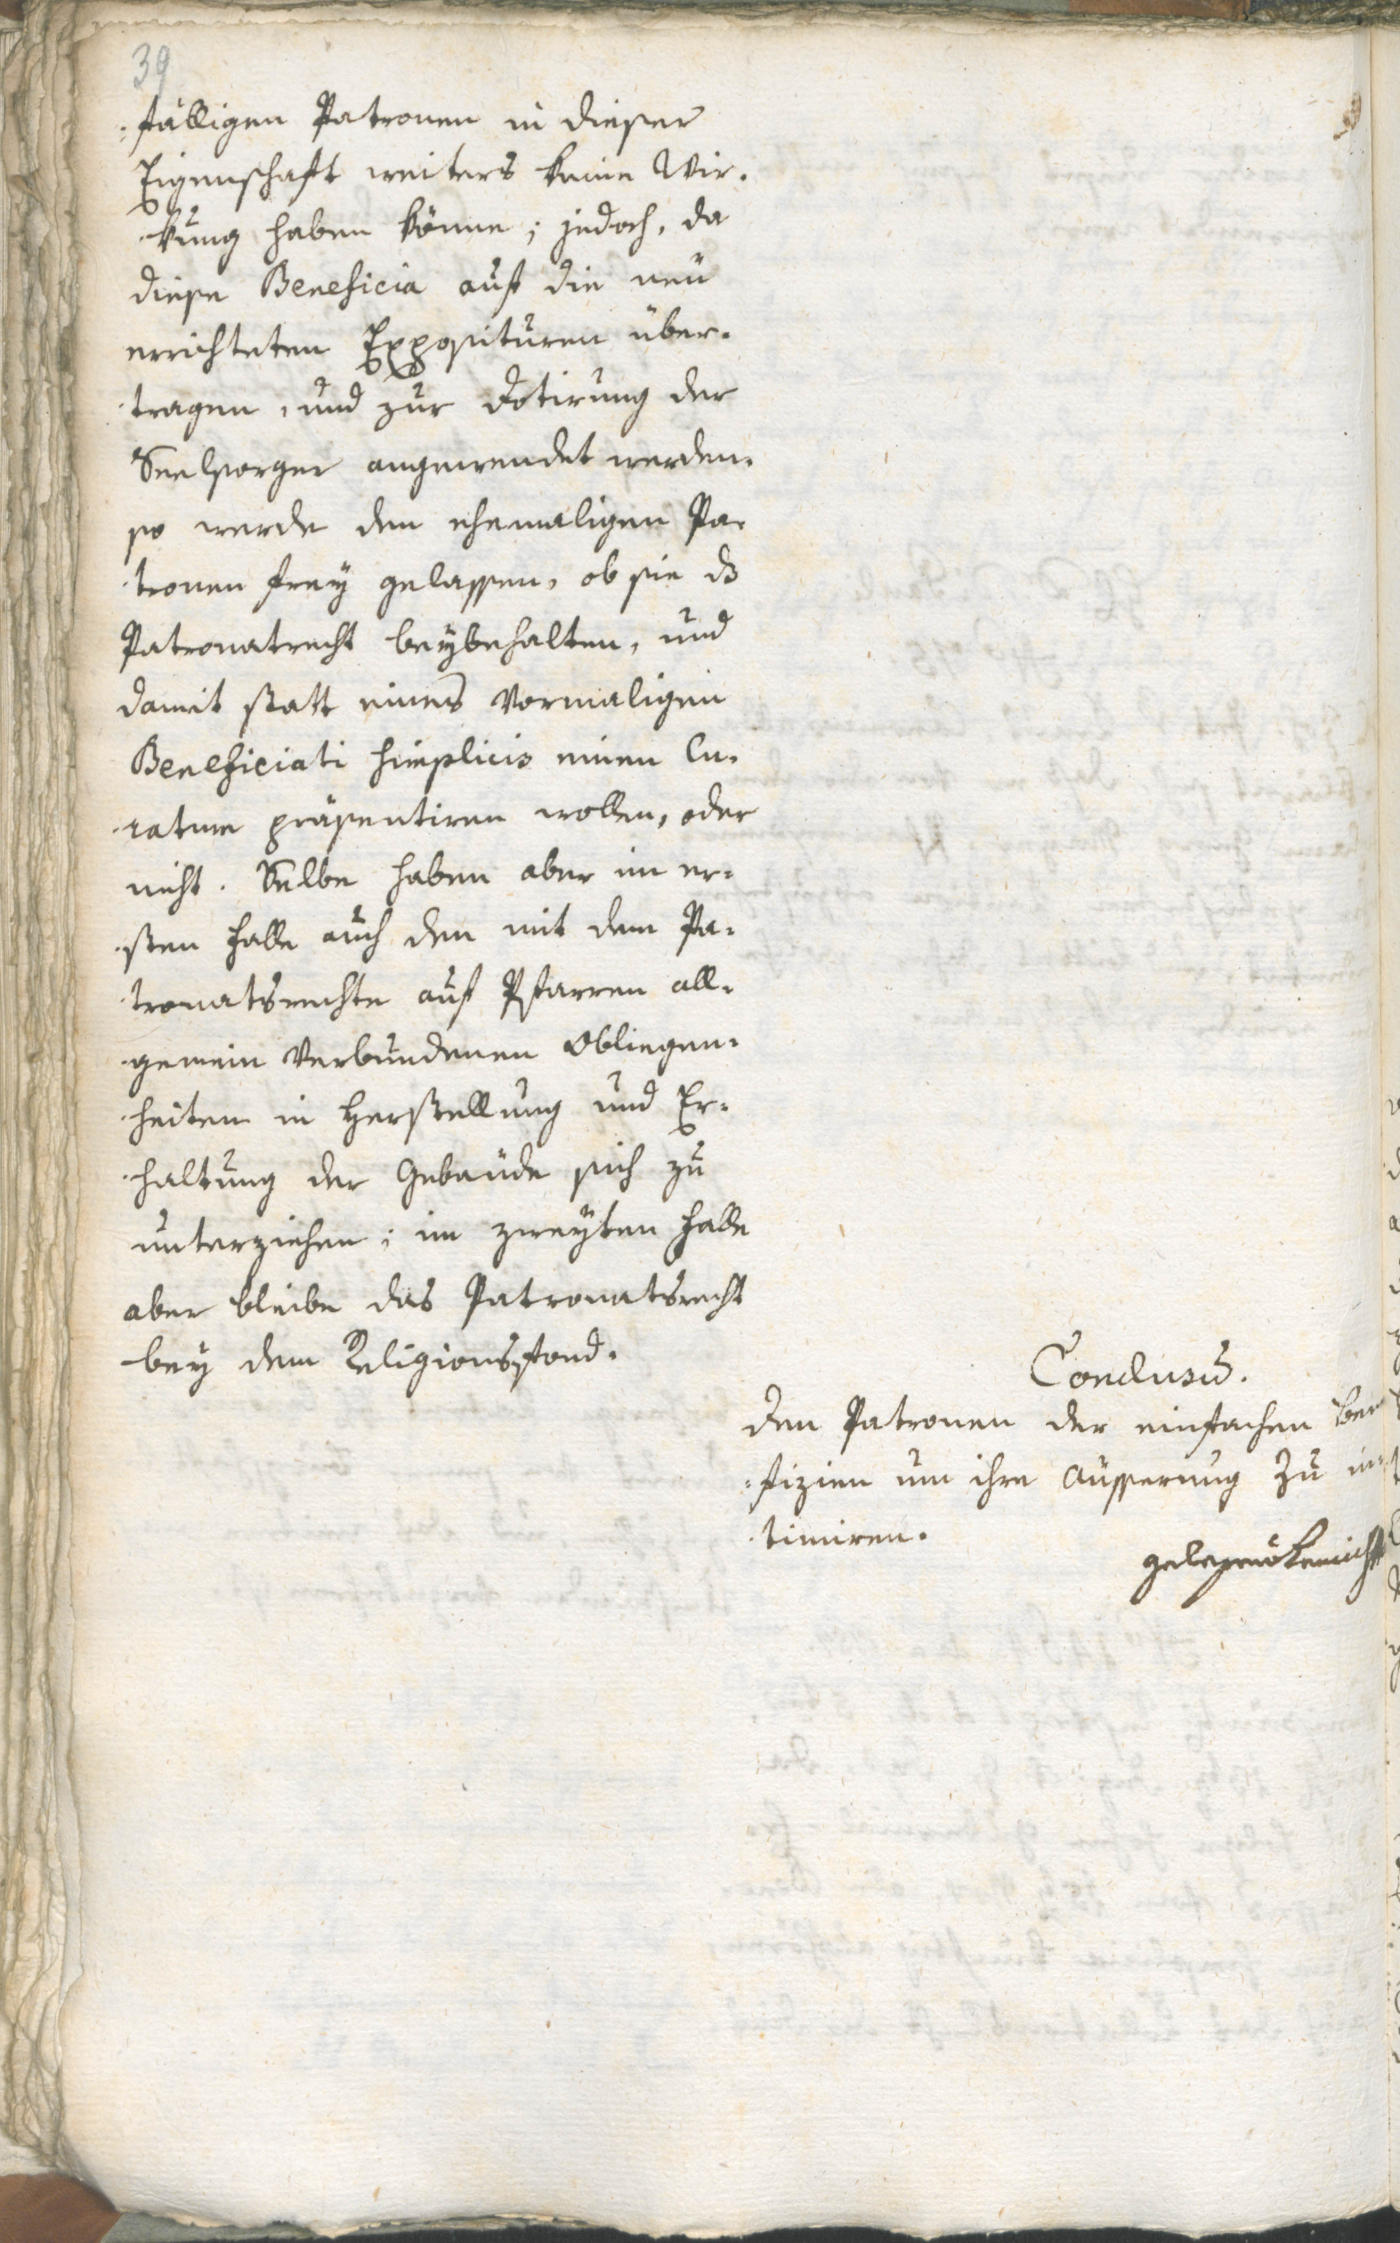 39
:fälligen Patronen in dieser
Eigenschaft weiters keine Wir-
-kung haben könne; jedoch, da
diese Beneficia auf die neu
errichteten Expositüren über-
-tragen, und zur Dotirung der
Seelsorger angewendet werden,
so werde den ehemaligen Pa-
-tronen freÿ gelassen, ob sie dß
Patronatrecht beÿbehalten, und
damit statt eines vormaligen
Beneficiati simplicis einen Cu-
-ratum präsentiren wollen, oder
nicht. Selbe haben aber im er-
-sten Falle auch den mit dem Pa-
-tronatsrechte auf Pfarren all-
-gemein verbundenen Obliegen-
-heiten in Herstellung und Er-
-haltung der Gebäude sich zu
unterziehen; im zweÿten Falle
aber bleibe das Patronatsrecht
beÿ dem Religionsfond.
Conclusũ.
Den Patronen der einfachen Bene
-fizien um ihre Äusserung zu in-
-timiren.